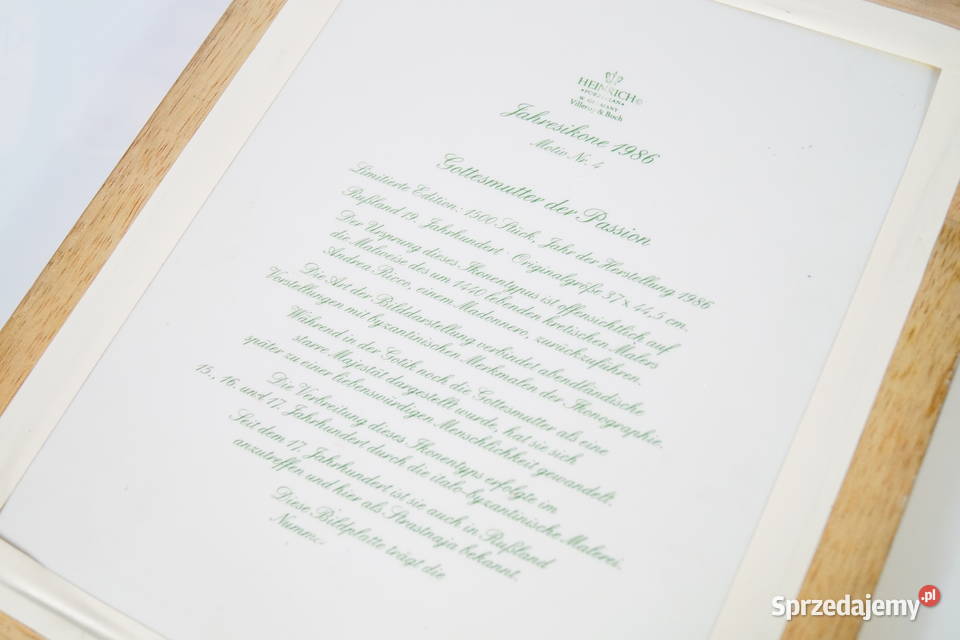 HEINRICH®
• PORZELLAN •
W. GERMANY
Villeroy & Boch
Jahresikone 1986
Motiv Nr. 4
Gottesmutter der Passion
Limitierte Edition: 1500 Stück, Jahr der Herstellung 1986
Rußland 19. Jahrhundert · Originalgröße 37 x 44,5 cm.
Der Ursprung dieses Ikonentypus ist offensichtlich auf
die Malweise des um 1440 lebenden kretischen Malers
Andrea Ricco, einem Madonnero, zurückzuführen.
Die Art der Bilddarstellung verbindet abendländische
Vorstellungen mit byzantinischen Merkmalen der Ikonographie.
Während in der Gotik noch die Gottesmutter als eine
starre Majestät dargestellt wurde, hat sie sich
später zu einer liebenswürdigen Menschlichkeit gewandelt.
Die Verbreitung dieses Ikonentyps erfolgte im
15., 16. und 17. Jahrhundert durch die italo-byzantinische Malerei.
Seit dem 17. Jahrhundert ist sie auch in Rußland
anzutreffen und hier als Strastnaja bekannt.
Diese Bildplatte trägt die
Sprzedajemy.pl